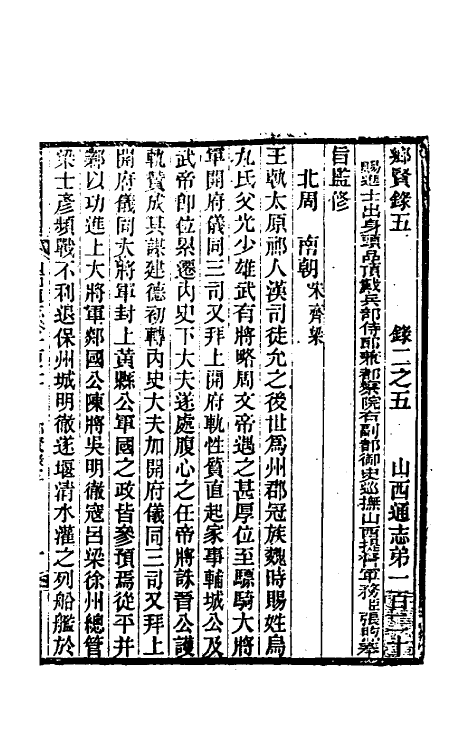 鄉賢錄五　錄二之五　山西通志弟一百
賜進士出身頭品頂戴兵部侍郎兼都察院右副都御史巡撫山西提督軍務
旨監修
北周　南朝宋齊梁
王軌太原祁人漢司徒允之後世爲州郡冠族魏時賜姓烏
丸氏父光少雄武有將略周文帝遇之甚厚位至驃騎大將
軍開府儀同三司又拜上開府軌性質直起家事輔城公及
武帝卽位累遷內史下大夫遂處腹心之任帝將誅晉公護
軌贊成其謀建德初轉內史大夫加開府儀同三司又拜上
開府儀同大將軍封上黃縣公軍國之政皆參預焉從平并
鄴以功進上大將軍郯國公陳將吳明徹寇呂梁徐州總管
梁士彥頻戰不利退保州城明徹遂堰清水灌之列船艦於